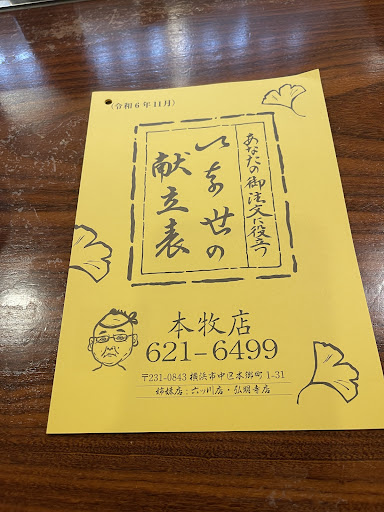 （令和6年11月）
あなたの御注文に役立つ
いなせの
献立表
本牧店
621-6499
〒231-0843 横浜市中区本郷町1-31
姉妹店：六ッ川店・弘明寺店